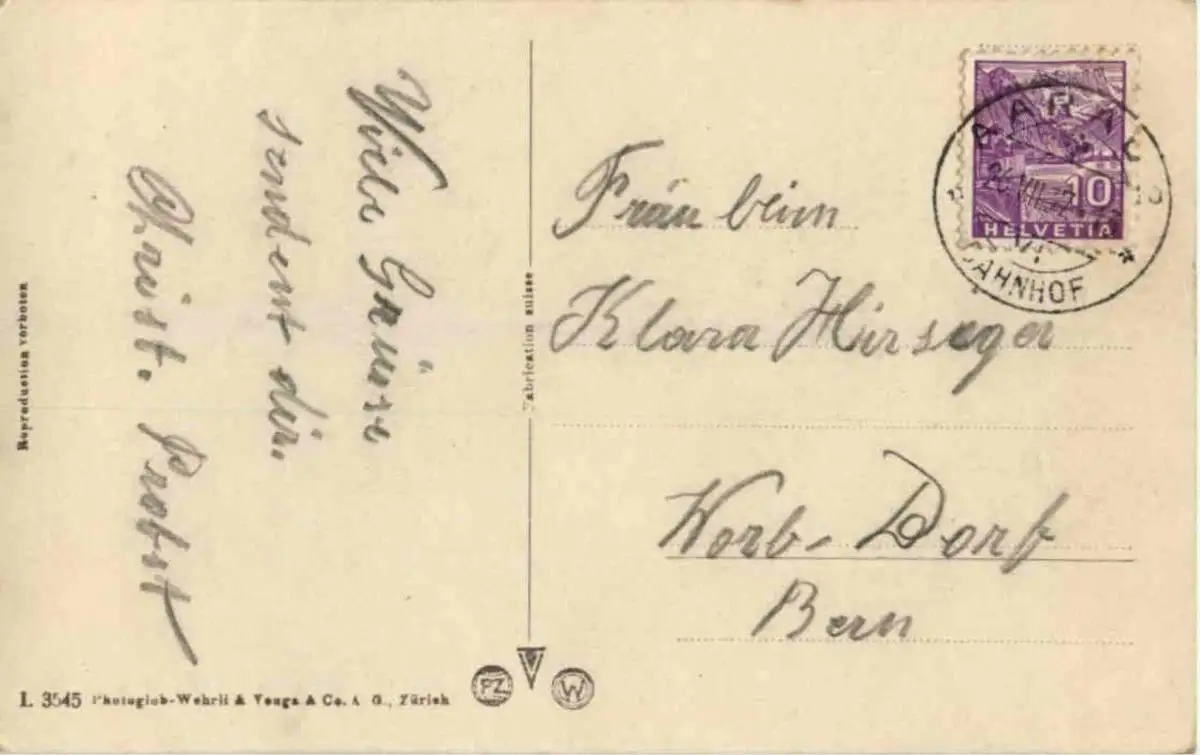 Viele Grüsse
sendent dir.
Christ. Probst
Fräu beim
Klara Hirseger
Worb-Dorf
Bern
AARAU
BAHNHOF
10
HELVETIA
Reproduction verboten
Fabrication suisse
L. 3545 Photoglob-Wehrli & Vouga & Co. A. G., Zürich
PZ
W